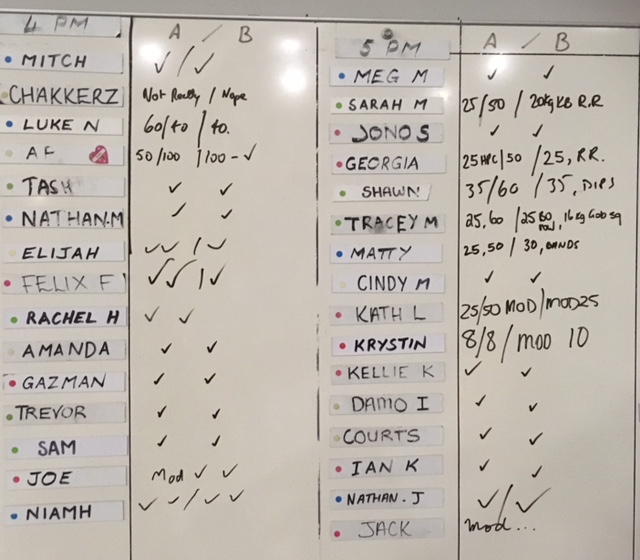 4 PM A / B
MITCH ✓ / ✓
CHAKKERZ Not Really / Nope
LUKE N 60/40 / 40.
AF 50/100 / 100 - ✓
TASH ✓ ✓
NATHAN.M ✓ ✓
ELIJAH ✓✓ / ✓
FELIX F ✓✓ / ✓
RACHEL H ✓ ✓
AMANDA ✓ ✓
GAZMAN ✓ ✓
TREVOR ✓ ✓
SAM ✓ ✓
JOE Mod ✓ ✓
NIAMH ✓ ✓ / ✓ ✓
5 PM A / B
MEG M ✓ ✓
SARAH M 25/50 / 20kg KB R.R
JONO S ✓ ✓
GEORGIA 25HPC/50 / 25, RR.
SHAWN 35/60 / 35, DIPS
TRACEY M 25,60 / 25 60 row, 16kg Gob sq
MATTY 25,50 / 30, BANDS
CINDY M ✓ ✓
KATH L 25/50 MOD / MOD25
KRYSTIN 8/8 / MOD 10
KELLIE K ✓ ✓
DAMO I ✓ ✓
COURTS ✓ ✓
IAN K ✓ ✓
NATHAN.J ✓ / ✓
JACK Mod...